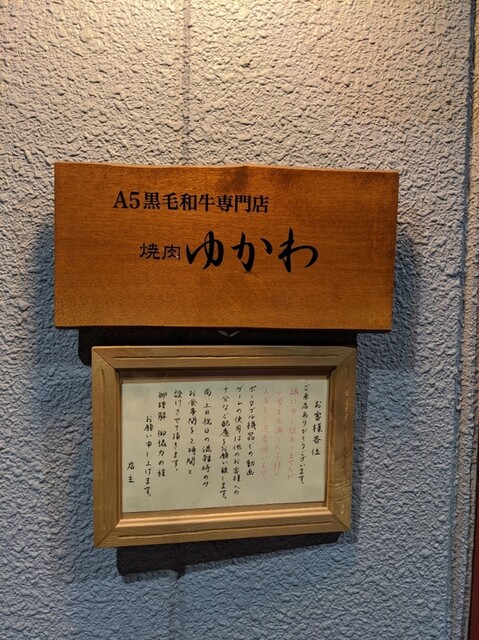 A5黒毛和牛専門店
焼肉 ゆかわ
お客様各位
ご来店ありがとうございます。
誠に申し訳ありませんが
ポータブル機器での動画
ゲームの使用は他のお客様への
十分なご配慮をお願い致します。
尚、土日祝日の混雑時のみ
お食事間を2時間と
設けさせて頂きます。
御理解 御協力の程
お願い申し上げます。
店主